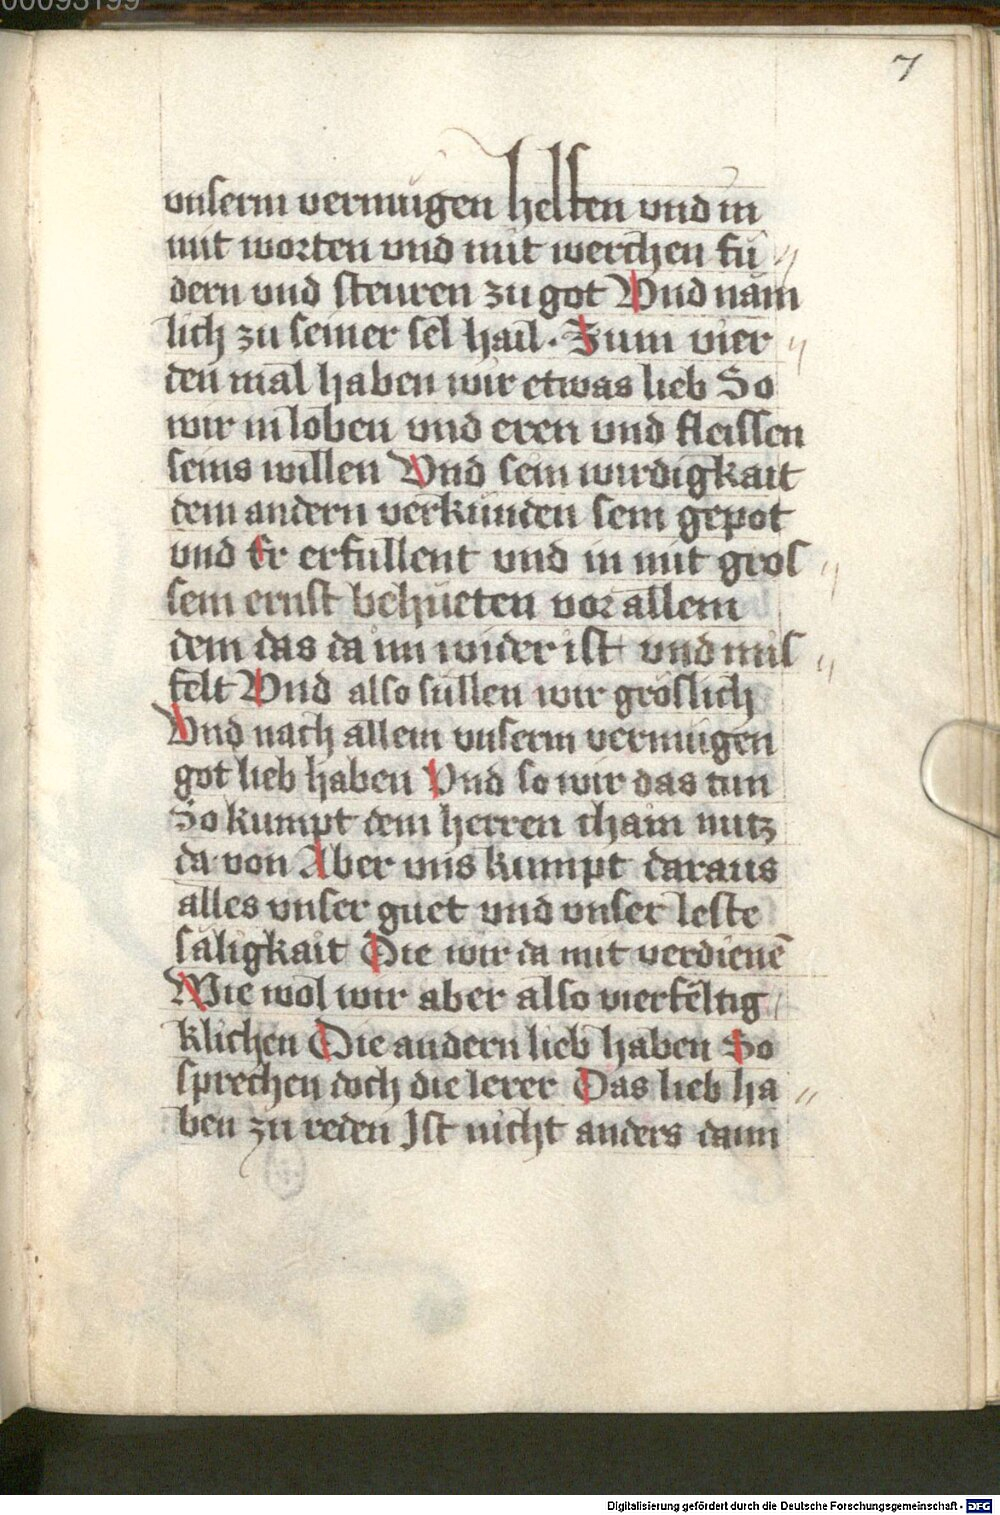 00093199
7
vnserm vermugen helffen vnd in
mit worten vnd mit werchen fu̇ //
dern vnd steuren zu got Vnd nam
lich zu seiner sel hail · Zum vier //
den mal haben wir etwas lieb So
wir in loben vnd eren vnd fleissen
seins willen Vnd sein wirdigkait
dem andern verkunden sein gepot
vnd Er erfullent vnd in mit gros //
sem ernst behüeten vor allem
dem das da im wider ist vnd mis //
felt Vnd also sullen wir gröslich
Vnd nach allem vnserm vermugen
got lieb haben Vnd so wir das tun
So kumpt dem herren chain nutz
da von Aber vns kumpt daraus
alles vnser guet vnd vnser leste
säligkait Die wir da mit verdienē
Wie wol wir aber also vierfeltig
klichen Die andern lieb haben So
sprechen doch die lerer Das lieb ha //
ben zu reden Ist nicht anders dann
Digitalisierung gefördert durch die Deutsche Forschungsgemeinschaft - DFG